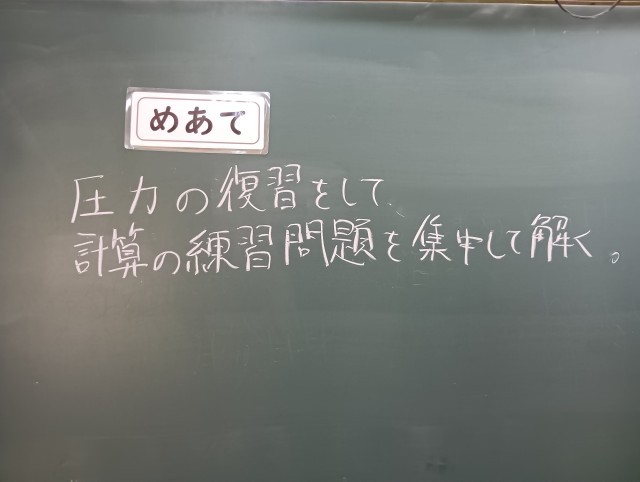 めあて
圧力の復習をして、
計算の練習問題を集中して解く。